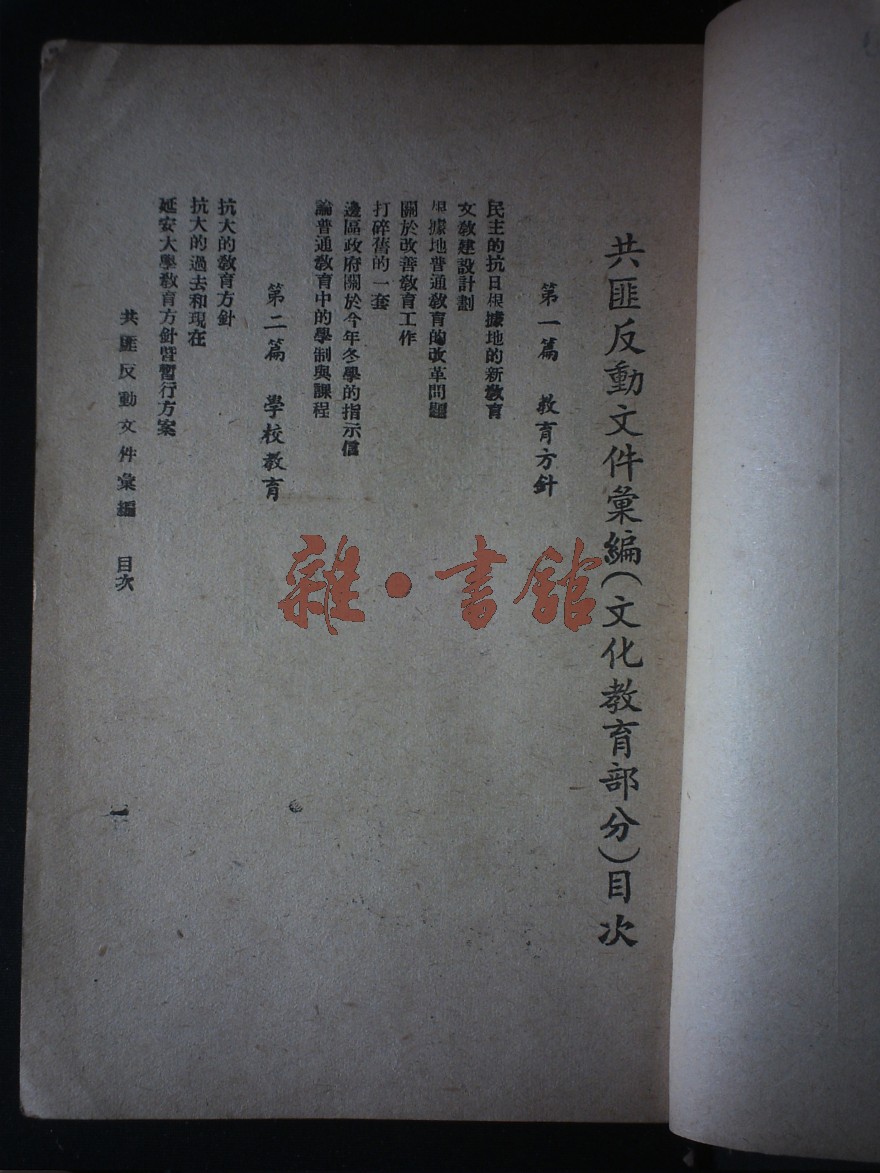 共匪反動文件彙編(文化教育部分)目次
第一篇 教育方針
民主的抗日根據地的新教育
文教建設計劃
根據地普通教育的改革問題
關於改善教育工作
打碎舊的一套
邊區政府關於今年冬學的指示信
論普通教育中的學制與課程
第二篇 學校教育
抗大的教育方針
抗大的過去和現在
延安大學教育方針暨暫行方案
共匪反動文件彙編 目次
一
雜·書館